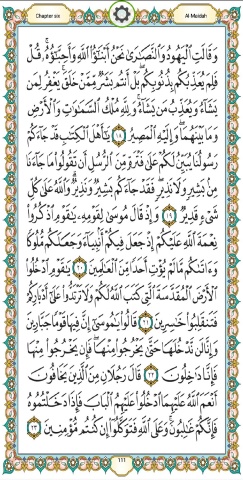 Chapter six Al Maidah
وَقَالَتِ ٱلْيَهُودُ وَٱلنَّصَٰرَىٰ نَحْنُ أَبْنَٰٓؤُا۟ ٱللَّهِ وَأَحِبَّٰٓؤُهُۥ ۚ قُلْ
فَلِمَ يُعَذِّبُكُم بِذُنُوبِكُم ۖ بَلْ أَنتُم بَشَرٌ مِّمَّنْ خَلَقَ ۚ يَغْفِرُ لِمَن
يَشَآءُ وَيُعَذِّبُ مَن يَشَآءُ ۚ وَلِلَّهِ مُلْكُ ٱلسَّمَٰوَٰتِ وَٱلْأَرْضِ
وَمَا بَيْنَهُمَا ۖ وَإِلَيْهِ ٱلْمَصِيرُ ١٨ يَٰٓأَهْلَ ٱلْكِتَٰبِ قَدْ جَآءَكُمْ
رَسُولُنَا يُبَيِّنُ لَكُمْ عَلَىٰ فَتْرَةٍ مِّنَ ٱلرُّسُلِ أَن تَقُولُوا۟ مَا جَآءَنَا
مِنۢ بَشِيرٍ وَلَا نَذِيرٍ ۖ فَقَدْ جَآءَكُم بَشِيرٌ وَنَذِيرٌ ۗ وَٱللَّهُ عَلَىٰ كُلِّ
شَىْءٍ قَدِيرٌ ١٩ وَإِذْ قَالَ مُوسَىٰ لِقَوْمِهِۦ يَٰقَوْمِ ٱذْكُرُوا۟
نِعْمَةَ ٱللَّهِ عَلَيْكُمْ إِذْ جَعَلَ فِيكُمْ أَنۢبِيَآءَ وَجَعَلَكُم مُّلُوكًا
وَءَاتَىٰكُم مَّا لَمْ يُؤْتِ أَحَدًا مِّنَ ٱلْعَٰلَمِينَ ٢٠ يَٰقَوْمِ ٱدْخُلُوا۟
ٱلْأَرْضَ ٱلْمُقَدَّسَةَ ٱلَّتِى كَتَبَ ٱللَّهُ لَكُمْ وَلَا تَرْتَدُّوا۟ عَلَىٰٓ أَدْبَارِكُمْ
فَتَنقَلِبُوا۟ خَٰسِرِينَ ٢١ قَالُوا۟ يَٰمُوسَىٰٓ إِنَّ فِيهَا قَوْمًا جَبَّارِينَ
وَإِنَّا لَن نَّدْخُلَهَا حَتَّىٰ يَخْرُجُوا۟ مِنْهَا فَإِن يَخْرُجُوا۟ مِنْهَا
فَإِنَّا دَٰخِلُونَ ٢٢ قَالَ رَجُلَانِ مِنَ ٱلَّذِينَ يَخَافُونَ
أَنْعَمَ ٱللَّهُ عَلَيْهِمَا ٱدْخُلُوا۟ عَلَيْهِمُ ٱلْبَابَ فَإِذَا دَخَلْتُمُوهُ
فَإِنَّكُمْ غَٰلِبُونَ ۚ وَعَلَى ٱللَّهِ فَتَوَكَّلُوٓا۟ إِن كُنتُم مُّؤْمِنِينَ ٢٣
١١١